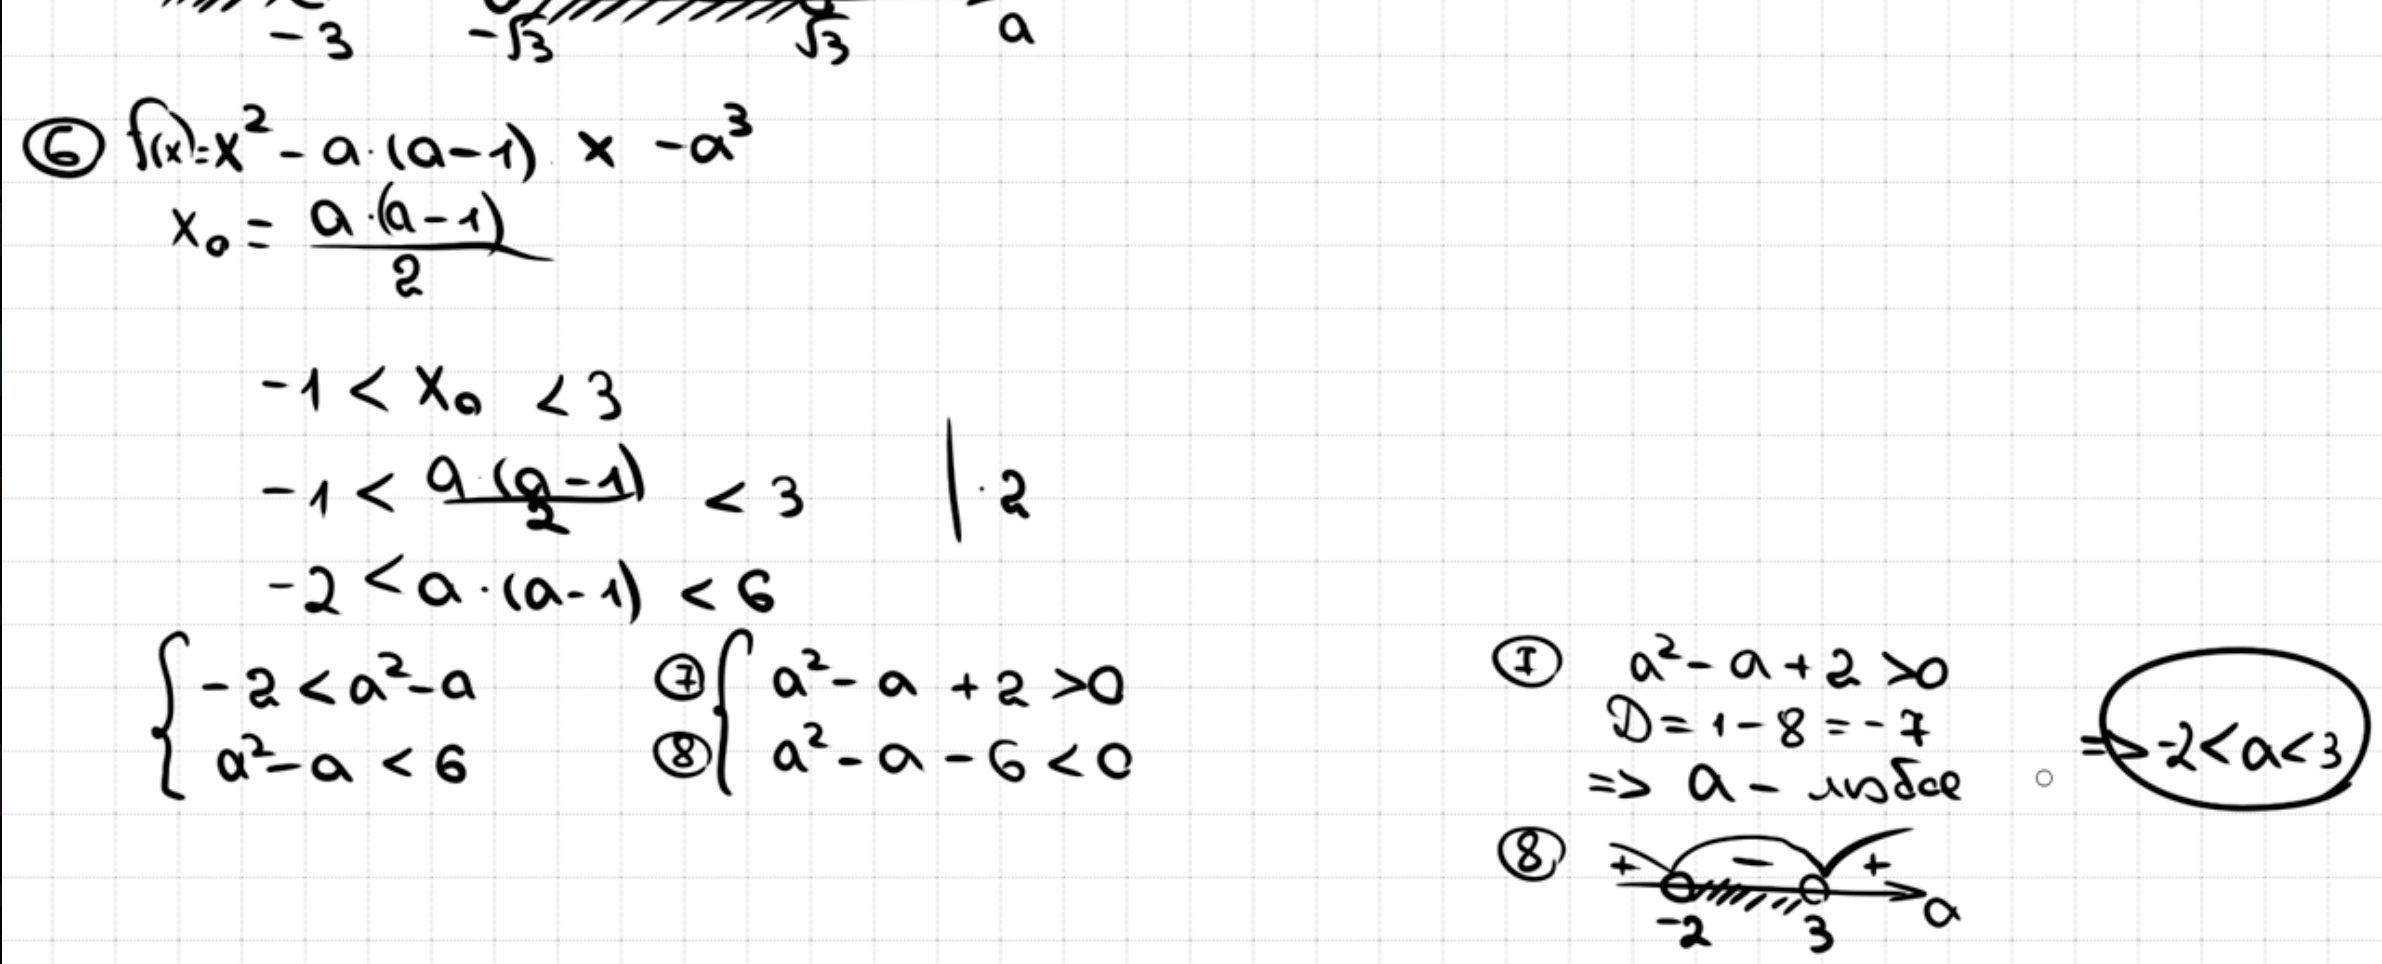 -3 -√3 √3 a
⑥ f(x)=x² - a·(a-1) x - a³
x₀ = a·(a-1)/2
-1 < x₀ < 3
-1 < a·(a-1)/2 < 3 | ·2
-2 < a·(a-1) < 6
{ -2 < a²-a
a²-a < 6
⑦ { a²-a+2 >0
⑧ a²-a-6 <0
⑦ a²-a+2 >0
D = 1-8 = -7
=> a - любое
=> -2<a<3
⑧ + - + a
-2 3